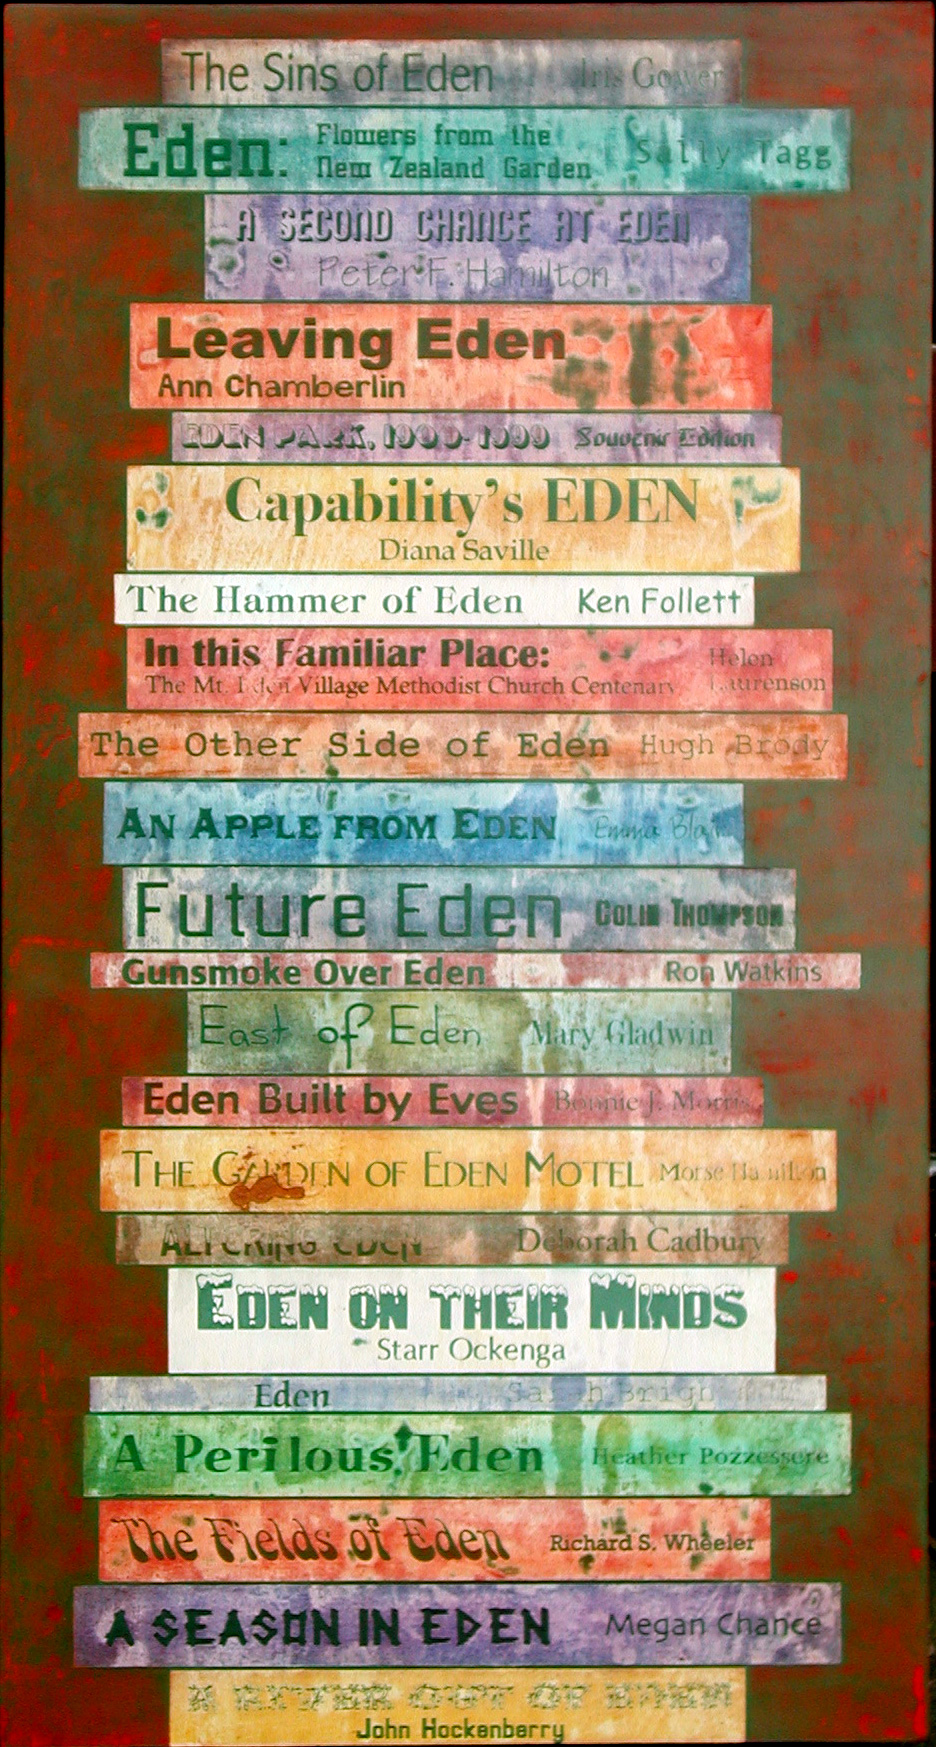 The Sins of Eden Iris Gower
Eden: Flowers from the
New Zealand Garden Sally Tagg
A SECOND CHANCE AT EDEN
Peter F. Hamilton
Leaving Eden
Ann Chamberlin
EDEN PARK, 1900-1999 Souvenir Edition
Capability's EDEN
Diana Saville
The Hammer of Eden Ken Follett
In this Familiar Place: Helen
The Mt. Eden Village Methodist Church Centenary Laurenson
The Other Side of Eden Hugh Brody
AN APPLE FROM EDEN Emma Blair
Future Eden COLIN THOMPSON
Gunsmoke Over Eden Ron Watkins
East of Eden Mary Gladwin
Eden Built by Eves Bonnie J. Morris
THE GARDEN OF EDEN MOTEL Morse Hamilton
ALTERING EDEN Deborah Cadbury
EDEN ON THEIR MINDS
Starr Ockenga
Eden Sarah
A Perilous Eden Heather Pozzessere
The Fields of Eden Richard S. Wheeler
A SEASON IN EDEN Megan Chance
A RIVER OUT OF EDEN
John Hockenberry